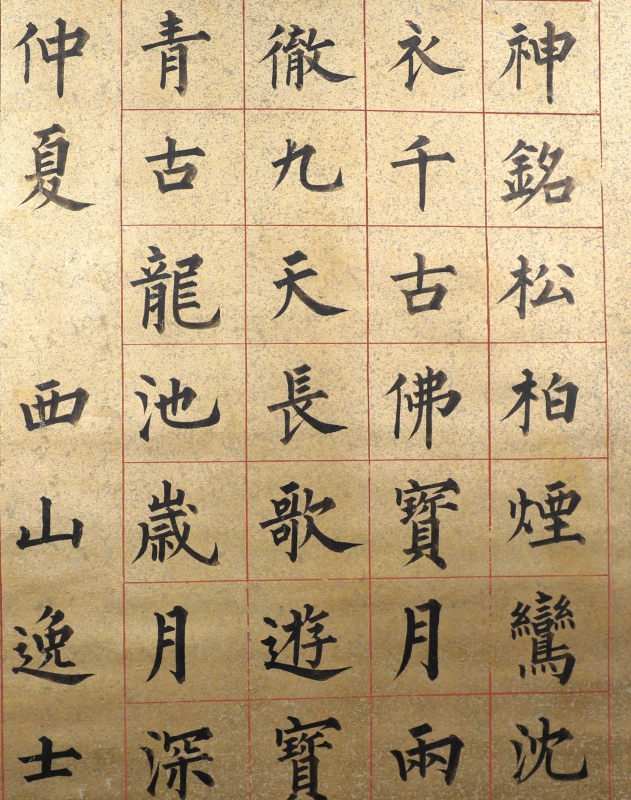 神銘松柏煙鸞沈
衣千古佛寶月兩
徹九天長歌遊寶
青古龍池歲月深
仲夏 西山逸士